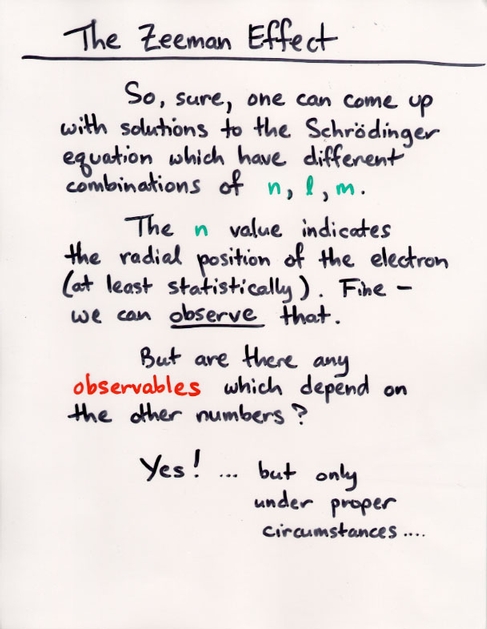 The Zeeman Effect
So, sure, one can come up
with solutions to the Schrödinger
equation which have different
combinations of n, l, m.
The n value indicates
the radial position of the electron
(at least statistically). Fine -
we can observe that.
But are there any
observables which depend on
the other numbers?
Yes! ... but only
under proper
circumstances ....